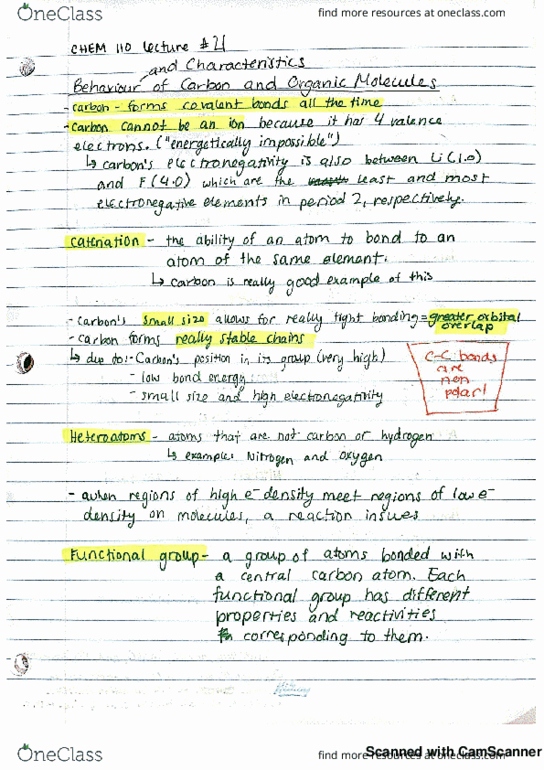 OneClass
find more resources at oneclass.com
CHEM 110 Lecture #4
and Characteristics
Behaviour of Carbon and Organic Molecules
- carbon - forms covalent bonds all the time
- Carbon cannot be an ion because it has 4 valence
electrons. ("energetically impossible")
↳ carbon's electronegativity is also between Li (1.0)
and F (4.0) which are the least and most
electronegative elements in period 2, respectively.
catenation - the ability of an atom to bond to an
atom of the same element.
↳ carbon is really good example of this
- carbon's small size allows for really tight bonding = greater orbital
overlap
- carbon forms really stable chains
↳ due to: - Carbon's position in its group (very high)
- low bond energy
- small size and high electronegativity
C-C bonds
are
non
polar!
Heteroatoms - atoms that are not carbon or hydrogen
↳ example: Nitrogen and oxygen
- when regions of high e⁻ density meet regions of low e⁻
density on molecules, a reaction insues
Functional group - a group of atoms bonded with
a central carbon atom. Each
functional group has different
properties and reactivities
corresponding to them.
OneClass
find more resources at oneclass.com
Scanned with CamScanner